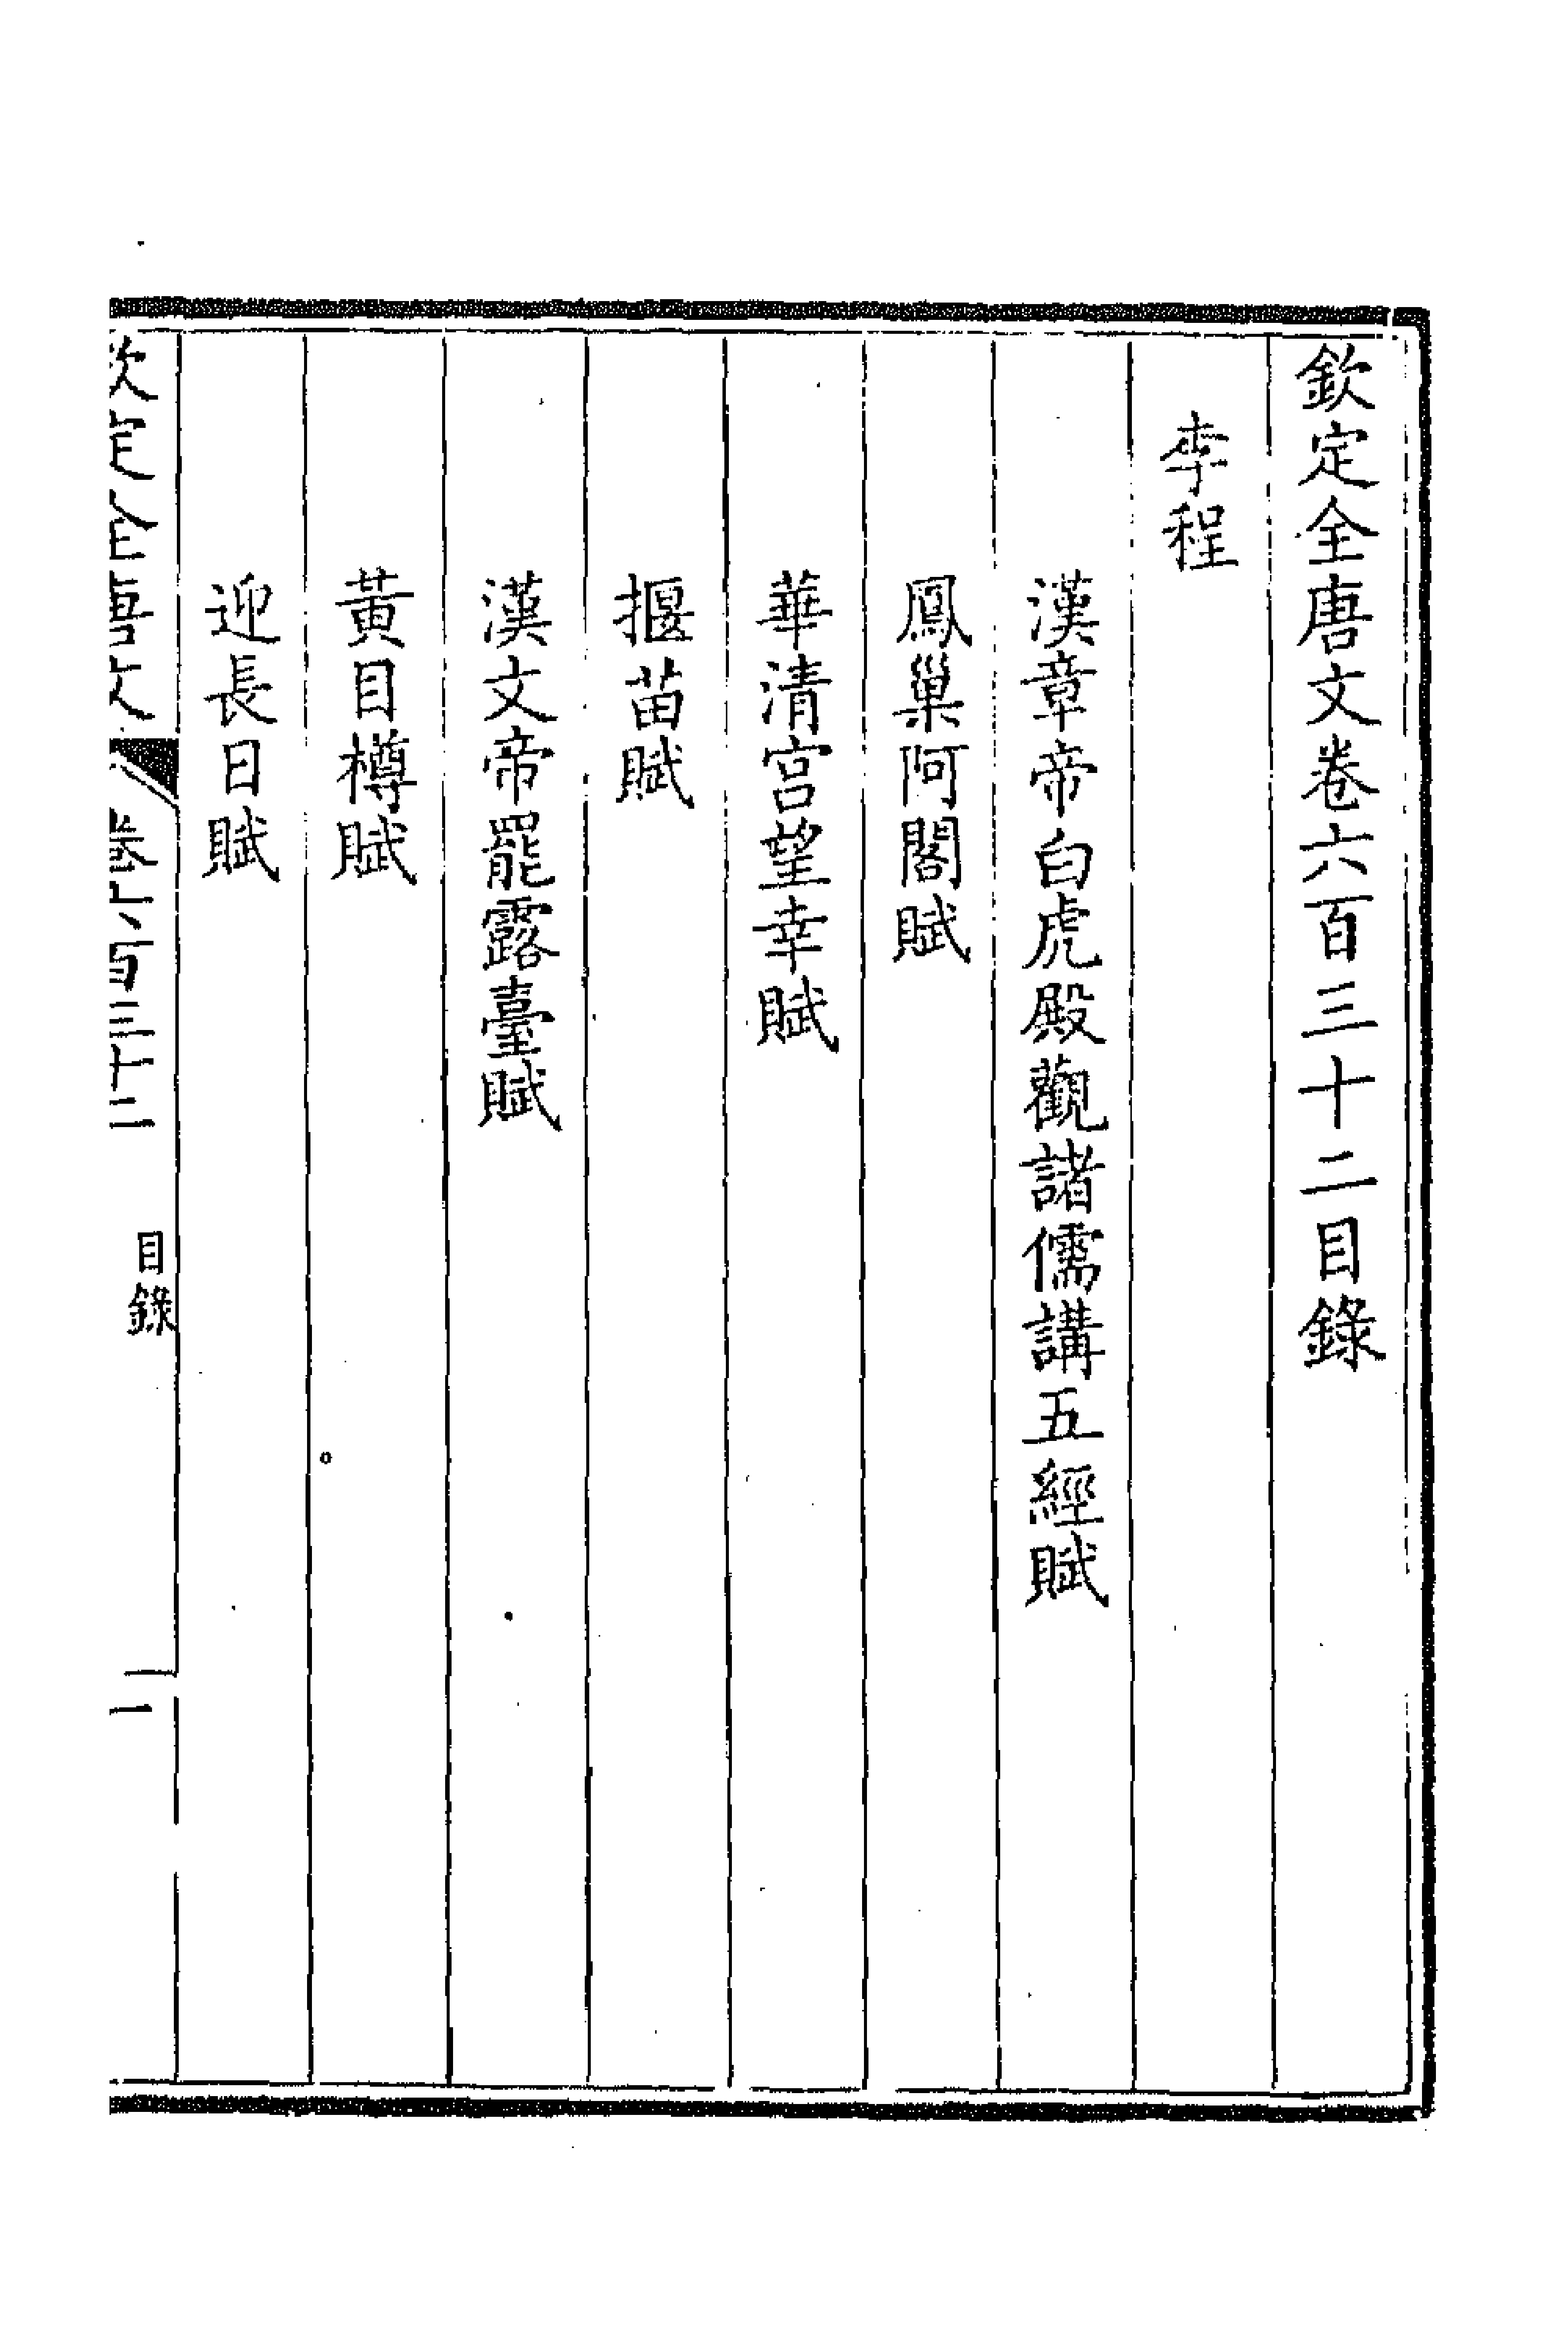 欽定全唐文卷六百三十二目錄
李程
漢章帝白虎殿觀諸儒講五經賦
鳳巢阿閣賦
華清宮望幸賦
揠苗賦
漢文帝罷露臺賦
黃目樽賦
迎長日賦
欽定全唐文 卷六百三十二 目錄 一